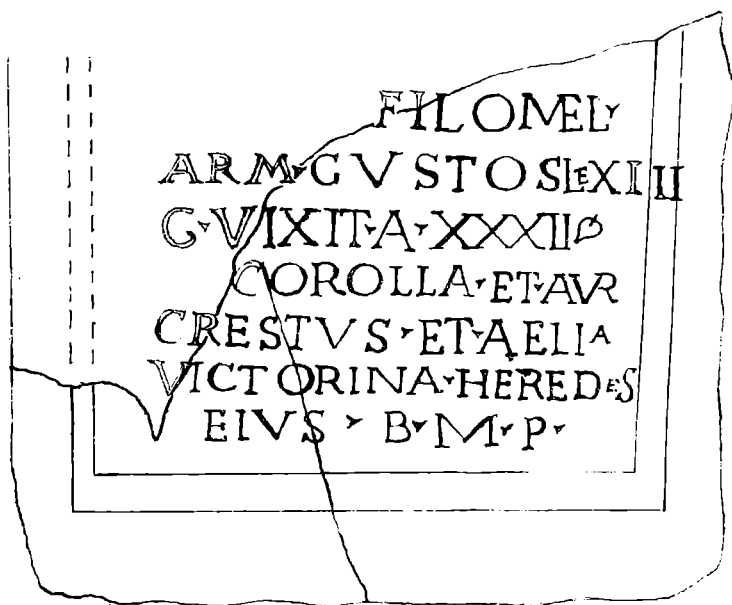 FILOMEL
ARM·CVSTOS LEXIIII
G·VIXIT·A·XXXII
COROLLA·ET·AVR
CRESTVS·ET·AELIA
VICTORINA·HEREDES
EIVS·B·M·P·